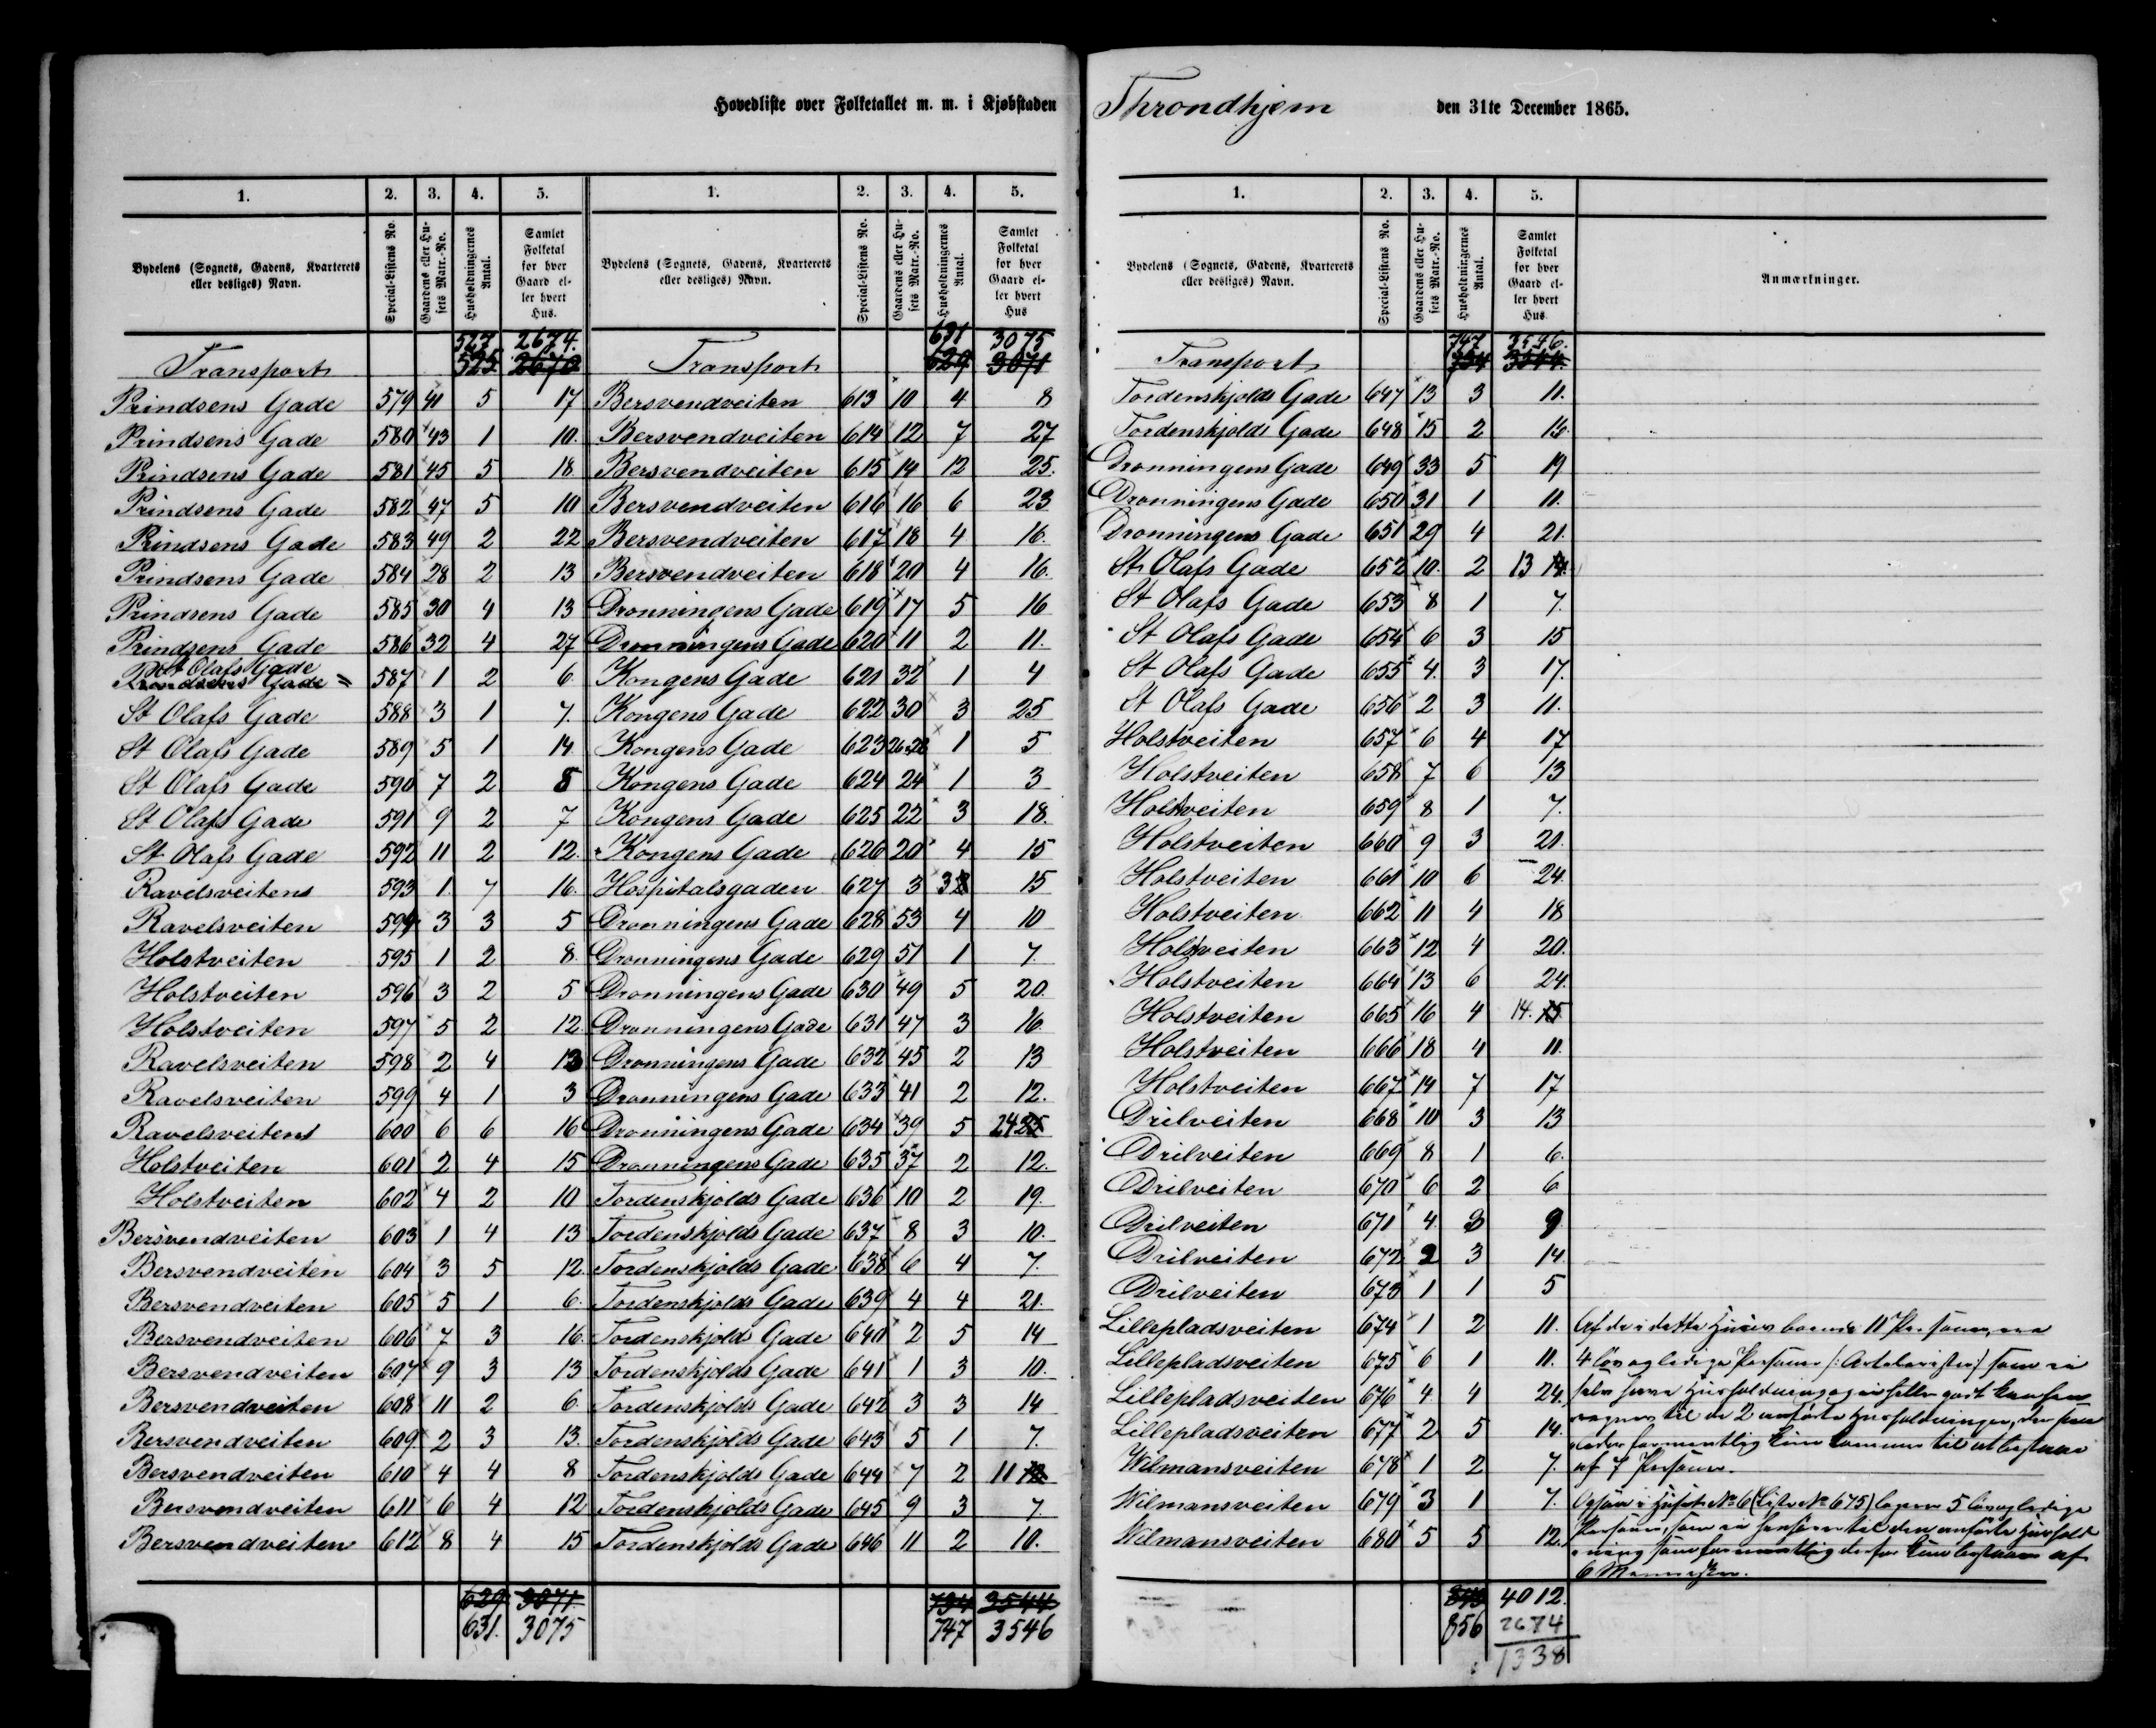 Hovedliste over Folketallet m. m. i Kjøbstaden Throndhjem den 31te December 1865.
1. 2. 3. 4. 5.
Bydelens (Sognets, Gadens, Kvarterets eller desliges) Navn. Special-Listens No. Gaardens eller Husets Matr.-No. Husholdningernes Antal. Samlet Folketal for hver Gaard eller hvert Hus.
527 2674.
Transport 525 2670
Prindsens Gade 579 41 5 17
Prindsens Gade 580 43 1 10.
Prindsens Gade 581 45 5 18
Prindsens Gade 582 47 5 10
Prindsens Gade 583 49 2 22
Prindsens Gade 584 28 2 13
Prindsens Gade 585 30 4 13
Prindsens Gade 586 32 4 27
St Olafs Gade
Prindsens Gade 587 1 2 6
St Olafs Gade 588 3 1 7.
St Olafs Gade 589 5 1 14
St Olafs Gade 590 7 2 8
St Olafs Gade 591 9 2 7
St Olafs Gade 592 11 2 12.
Ravelsveitens 593 1. 7 16.
Ravelsveiten 594 3 3 5
Holstveiten 595 1 2 8.
Holstveiten 596 3 2 5
Holstveiten 597 5 2 12
Ravelsveiten 598 2 4 13
Ravelsveiten 599 4 1 3
Ravelsveitens 600 6 6 16
Holstveiten 601 2 4 15
Holstveiten 602 4 2 10
Bersvendveiten 603 1 4 13
Bersvendveiten 604 3 5 12
Bersvendveiten 605 5 1 6.
Bersvendveiten 606 7 3 16
Bersvendveiten 607 9 3 13
Bersvendveiten 608 11 2 6
Bersvendveiten 609 2 3 13.
Bersvendveiten 610 4 4 8
Bersvendveiten 611 6 4 12
Bersvendveiten 612 8 4 15
629 3071.
631. 3075
1. 2. 3. 4. 5.
Bydelens (Sognets, Gadens, Kvarterets eller desliges) Navn. Special-Listens No. Gaardens eller Husets Matr.-No. Husholdningernes Antal. Samlet Folketal for hver Gaard eller hvert Hus
631 3075
Transport 629 3071
Bersvendveiten 613 10 4 8
Bersvendveiten 614 12 7 27
Bersvendveiten 615 14 12 25.
Bersvendveiten 616 16 6 23
Bersvendveiten 617 18 4 16.
Bersvendveiten 618 20 4 16.
Dronningens Gade 619 17 5 16
Dronningens Gade 620 11 2 11.
Kongens Gade 621 32 1 4
Kongens Gade 622 30 3 25
Kongens Gade 623 26.28 1 5
Kongens Gade 624 24 1 3
Kongens Gade 625 22 3 18.
Kongens Gade 626 20 4 15
Hospitalsgaden 627 3 3 15
Dronningens Gade 628 53 4 10
Dronningens Gade 629 51 1 7.
Dronningens Gade 630 49 5 20.
Dronningens Gade 631 47 3 16.
Dronningens Gade 632 45 2 13
Dronningens Gade 633 41 2 12.
Dronningens Gade 634 39 5 24 25
Dronningens Gade 635 37 2 12.
Tordenskjolds Gade 636 10 2 19.
Tordenskjolds Gade 637 8 3 10.
Tordenskjolds Gade 638 6 4 7.
Tordenskjolds Gade 639 4 4 21.
Tordenskjolds Gade 640 2 5 14
Tordenskjolds Gade 641 1 3 10.
Tordenskjolds Gade 642 3 3 14
Tordenskjolds Gade 643 5 1 7.
Tordenskjolds Gade 644 7 2 11
Tordenskjolds Gade 645 9 3 7.
Tordenskjolds Gade 646 11 2 10.
734 3544
747 3546
1. 2. 3. 4. 5.
Bydelens (Sognets, Gadens, Kvarterets eller desliges) Navn. Special-Listens No. Gaardens eller Husets Matr.-No. Husholdningernes Antal. Samlet Folketal for hver Gaard eller hvert Hus Anmærkninger.
747 3546.
Transport 734 3544.
Tordenskjolds Gade 647 13 3 11.
Tordenskjolds Gade 648 15 2
Dronningens Gade 649 33 5 19
Dronningens Gade 650 31 1 11.
Dronningens Gade 651 29 4 21.
St Olafs Gade 652 10. 2 13 14.
St Olafs Gade 653 8 1 7.
St Olafs Gade 654 6 3 15
St Olafs Gade 655 4. 3 17.
St Olafs Gade 656 2 3 11.
Holstveiten 657 6 4 17
Holstveiten 658 7 6 13
Holstveiten 659 8 1 7.
Holstveiten 660 9 3 21.
Holstveiten 661 10 6 24.
Holstveiten 662 11 4 18
Holstveiten 663 12 4 20.
Holstveiten 664 13 6 24.
Holstveiten 665 16 4 14. 15
Holstveiten 666 18 4 11.
Holstveiten 667 14 7 17
Drilveiten 668 10 3 13
Drilveiten 669 8 1 6.
Drilveiten 670 6 2 6
Drilveiten 671 4. 3 9
Drilveiten 672 2 3 14.
Drilveiten 673 1 1 5
Lillepladsveiten 674 1 2 11. Af de i dette Huus boende 11 Personer, ere
Lillepladsveiten 675 6 1 11. 4 løsagledige Personer som ei
Lillepladsveiten 676 4. 4 24.
Lillepladsveiten 677 2 5 14. regnes til de 2 anførte Husholdninger, der
Wilmansveiten 678 1 2 7. af 7 Personer.
Wilmansveiten 679 3 1 7. Ogsaa i Huset No 6 (Liste No 675) logere 5 løsagledige
Wilmansveiten 680 5 5 12. Personer, som ei henhøre til den anførte Hushold
ning som formentlig derfor kun bestaar af
6 Mennesker.
843 4012.
856 2674
1338